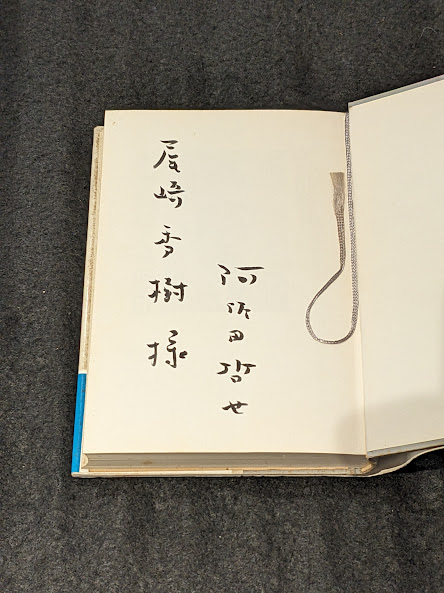 阿佐田哲也
尾崎秀樹様